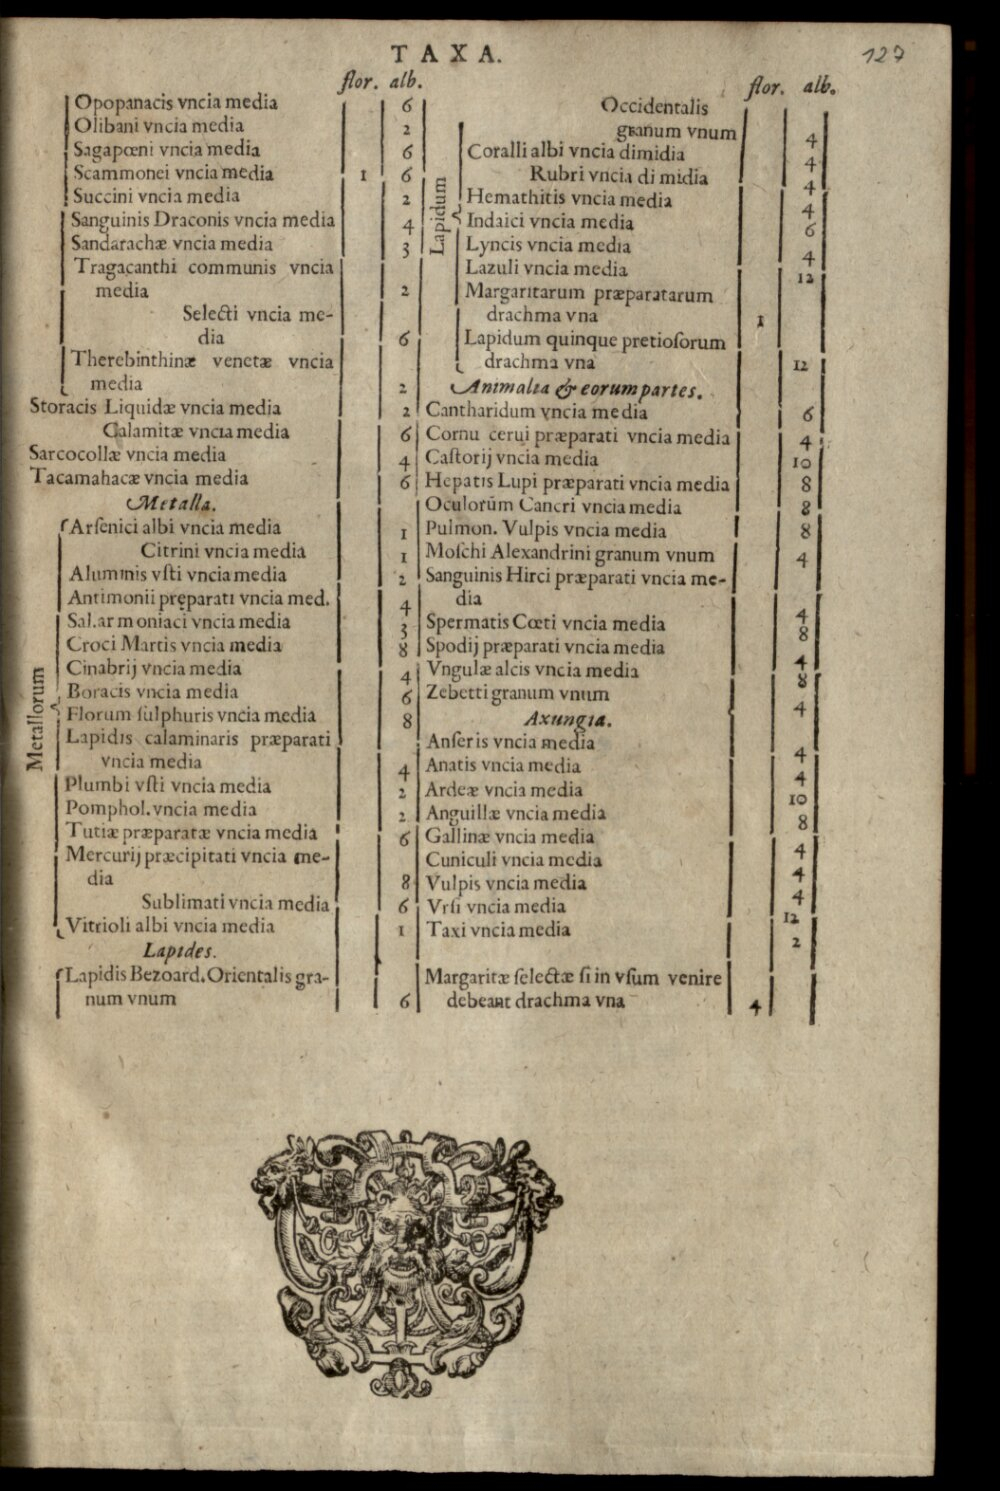 TAXA.
127
flor. alb.
Opopanacis vncia media 6
Olibani vncia media 2
Sagapœni vncia media 6
Scammonei vncia media 1 6
Succini vncia media 2
Sanguinis Draconis vncia media 4
Sandarachæ vncia media 3
Tragacanthi communis vncia
media 2
Selecti vncia me-
dia 6
Therebinthinæ venetæ vncia
media 2
Storacis Liquidæ vncia media 2
Calamitæ vncia media 6
Sarcocollæ vncia media 4
Tacamahacæ vncia media 6
Metalla.
Metallorum
Arſenici albi vncia media 1
Citrini vncia media 1
Aluminis vſti vncia media 2
Antimonii pręparati vncia med. 4
Sal.armoniaci vncia media 3
Croci Martis vncia media 8
Cinabrij vncia media 4
Boracis vncia media 6
Florum ſulphuris vncia media 8
Lapidis calaminaris præparati
vncia media 4
Plumbi vſti vncia media 2
Pomphol. vncia media 2
Tutiæ præparatæ vncia media 6
Mercurij præcipitati vncia me-
dia 8
Sublimati vncia media 6
Vitrioli albi vncia media 1
Lapides.
Lapidis Bezoard. Orientalis gra-
num vnum 6
flor. alb.
Lapidum
Occidentalis
granum vnum 4
Coralli albi vncia dimidia 4
Rubri vncia di midia 4
Hemathitis vncia media 4
Indaici vncia media 6
Lyncis vncia media 4
Lazuli vncia media 12
Margaritarum præparatarum
drachma vna 1
Lapidum quinque pretioſorum
drachma vna 12
Animalia & eorum partes.
Cantharidum vncia media 6
Cornu cerui præparati vncia media 4
Caſtorij vncia media 10
Hepatis Lupi præparati vncia media 8
Oculorūm Cancri vncia media 8
Pulmon. Vulpis vncia media 8
Moſchi Alexandrini granum vnum 4
Sanguinis Hirci præparati vncia me-
dia 4
Spermatis Cœti vncia media 8
Spodij præparati vncia media 4
Vngulæ alcis vncia media 8
Zebetti granum vnum 4
Axungia.
Anſeris vncia media 4
Anatis vncia media 4
Ardeæ vncia media 10
Anguillæ vncia media 8
Gallinæ vncia media 4
Cuniculi vncia media 4
Vulpis vncia media 4
Vrſi vncia media 12
Taxi vncia media 2
Margaritæ ſelectæ ſi in vſum venire
debeant drachma vna 4